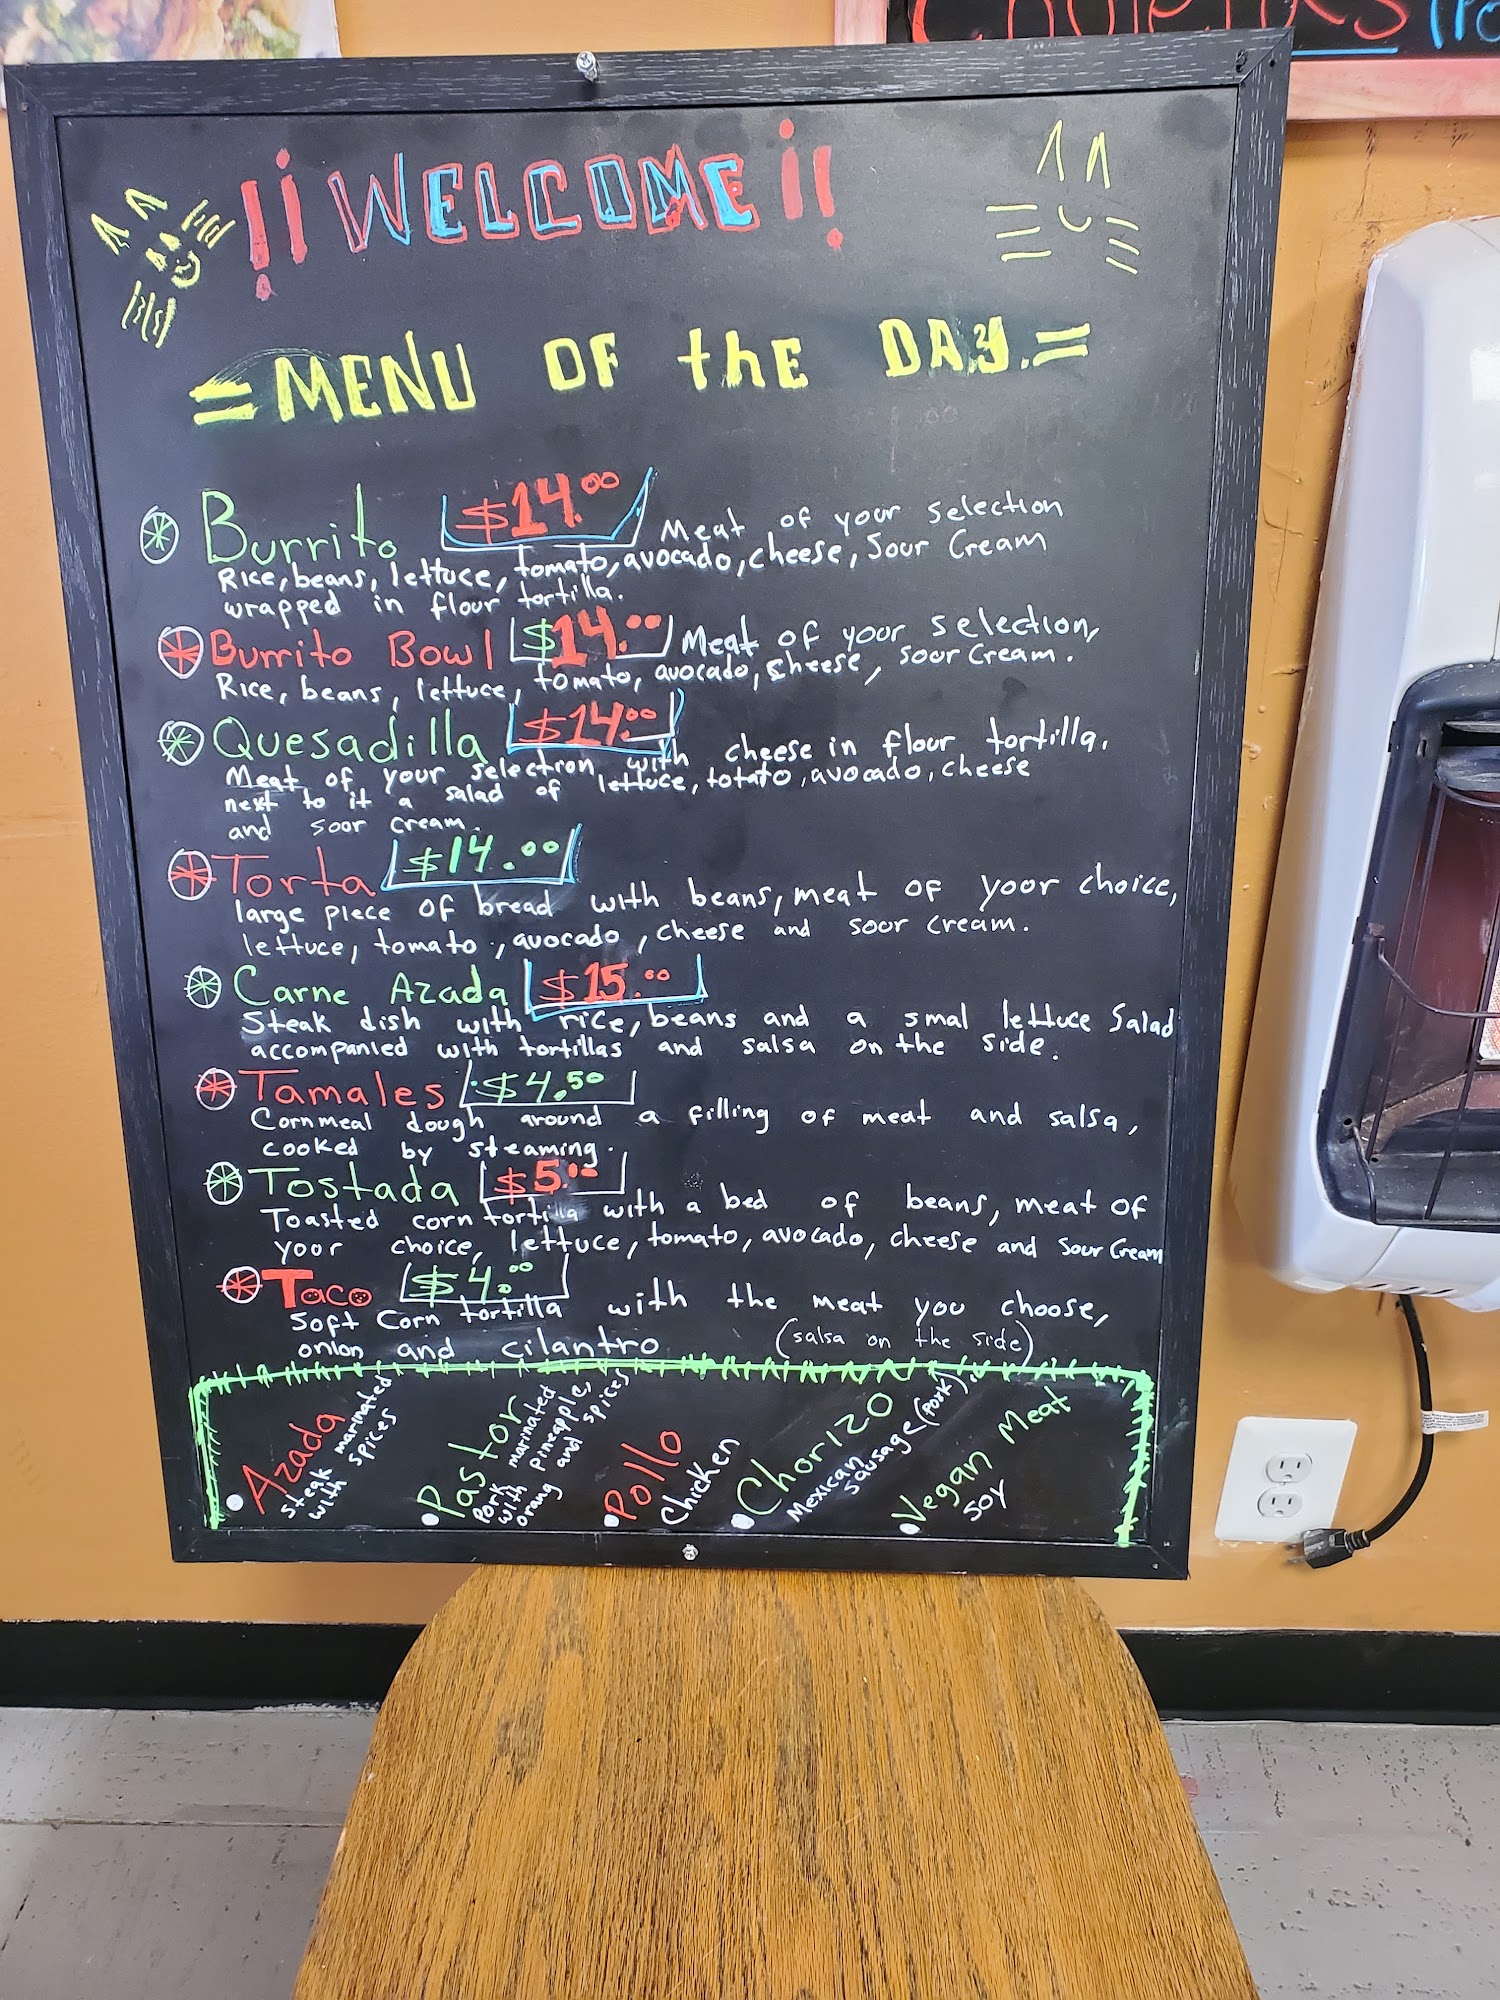 ¡¡WELCOME!!
=MENU OF the DAY.=
Burrito $14.00 Meat of your selection
Rice, beans, lettuce, tomato, avocado, cheese, Sour Cream
wrapped in flour tortilla.
Burrito Bowl $14.00 Meat of your selection,
Rice, beans, lettuce, tomato, avocado, cheese, sour Cream.
Quesadilla $14.00
Meat of your selection with cheese in flour tortilla.
next to it a salad of lettuce, totato, avocado, cheese
and sour cream.
Torta $14.00
large piece of bread with beans, meat of your choice,
lettuce, tomato, avocado, cheese and sour cream.
Carne Azada $15.00
Steak dish with rice, beans and a smal lettuce Salad
accompanied with tortillas and salsa on the side.
Tamales $4.50
Cornmeal dough around a filling of meat and salsa,
cooked by steaming.
Tostada $5.00
Toasted corn tortilla with a bed of beans, meat of
your choice, lettuce, tomato, avocado, cheese and Sour Cream
Taco $4.00
Soft Corn tortilla with the meat you choose,
onion and cilantro (salsa on the side)
Azada
steak marinated
with spices
Pastor
Pork marinated
with pineapple,
orang and spices
Pollo
Chicken
Chorizo
Mexican
sausage (Pork)
Vegan Meat
Soy